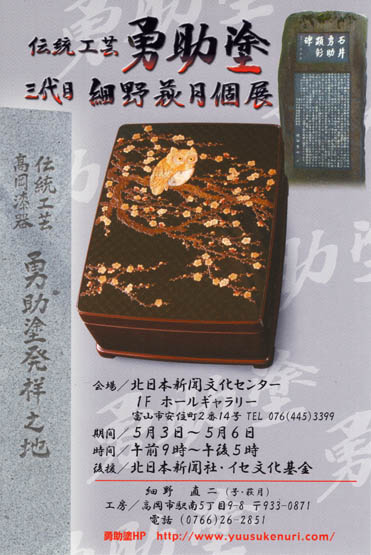 伝統工芸 勇助塗
三代目 細野萩月個展
石片
勇助
顕彰
碑
伝統工芸
高岡漆器
勇助塗発祥之地
会場／北日本新聞文化センター
1F ホールギャラリー
富山市安住町2番14号 TEL 076(445)3399
期間／5月3日～5月6日
時間／午前9時～午後5時
後援／北日本新聞社・イセ文化基金
細野 直二(号・萩月)
工房／高岡市駅南5丁目9-8 〒933-0871
電話 (0766)26-2851
勇助塗HP http://www.yuusukenuri.com/